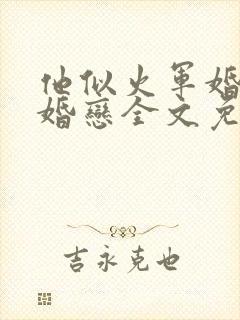 他似火军婚
婚恋全文免
吉永克也